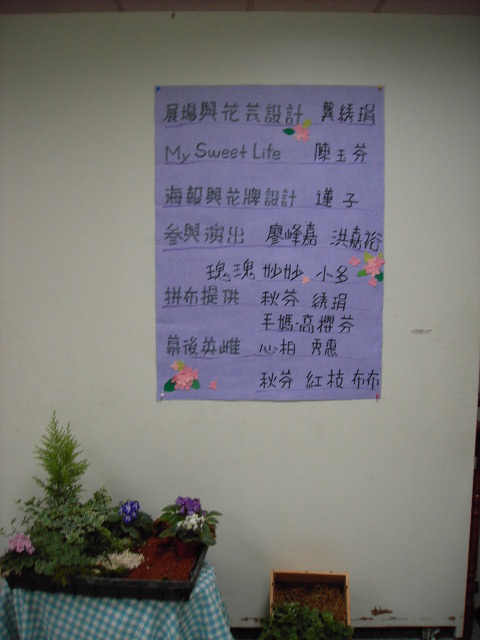 展場與花芸設計 龔綉琄
My Sweet Life 陳玉芬
海報與花牌設計 蓮子
參與演出 廖峰嘉 洪嘉裕
瑰瑰 妙妙 小多
拼布提供 秋芬 綉琄
毛媽 高櫻芬
幕後英雌 心柏 秀惠
秋芬 紅枝 布布